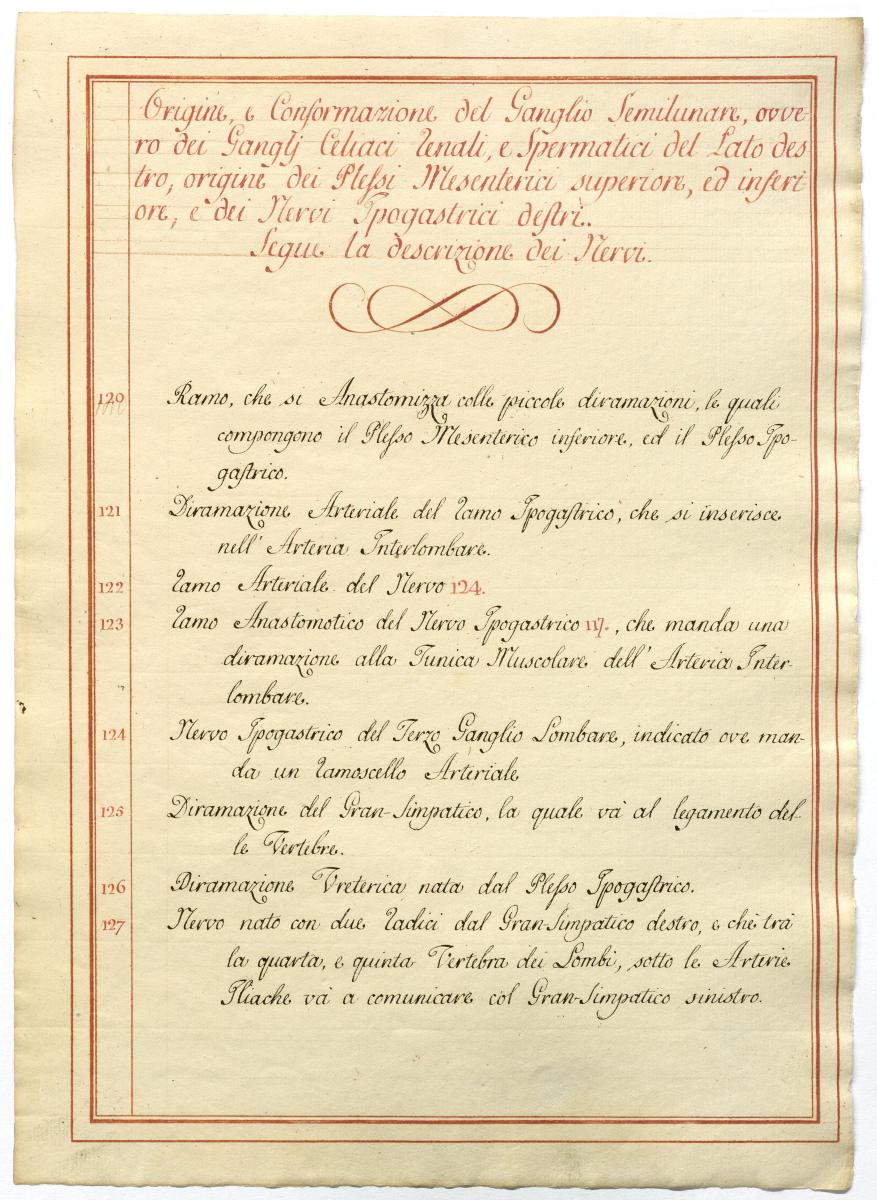 Origine, e Conformazione del Ganglio Semilunare, ovve
ro dei Ganglj Celiaci Renali, e Spermatici del Lato des
tro, origine dei Plessi Mesenterici superiore, ed inferi
ore, e dei Nervi Ipogastrici destri.
Segue la descrizione dei Nervi.
120 Ramo, che si Anastomizza colle piccole diramazioni, le quali
compongono il Plesso Mesenterico inferiore, ed il Plesso Ipo-
gastrico.
121 Diramazione Arteriale del Ramo Ipogastrico, che si inserisce
nell' Arteria Interlombare.
122 Ramo Arteriale del Nervo 124.
123 Ramo Anastomotico del Nervo Ipogastrico 117., che manda una
diramazione alla Tunica Muscolare dell' Arteria Inter-
lombare.
124 Nervo Ipogastrico del Terzo Ganglio Lombare, indicato ove man-
da un Ramoscello Arteriale
125 Diramazione del Gran-Simpatico, la quale và al legamento del-
le Vertebre.
126 Diramazione Vreterica nata dal Plesso Ipogastrico.
127 Nervo nato con due Radici dal Gran-Simpatico destro, e che trà
la quarta, e quinta Vertebra dei Lombi, sotto le Arterie
Iliache và a comunicare col Gran-Simpatico sinistro.